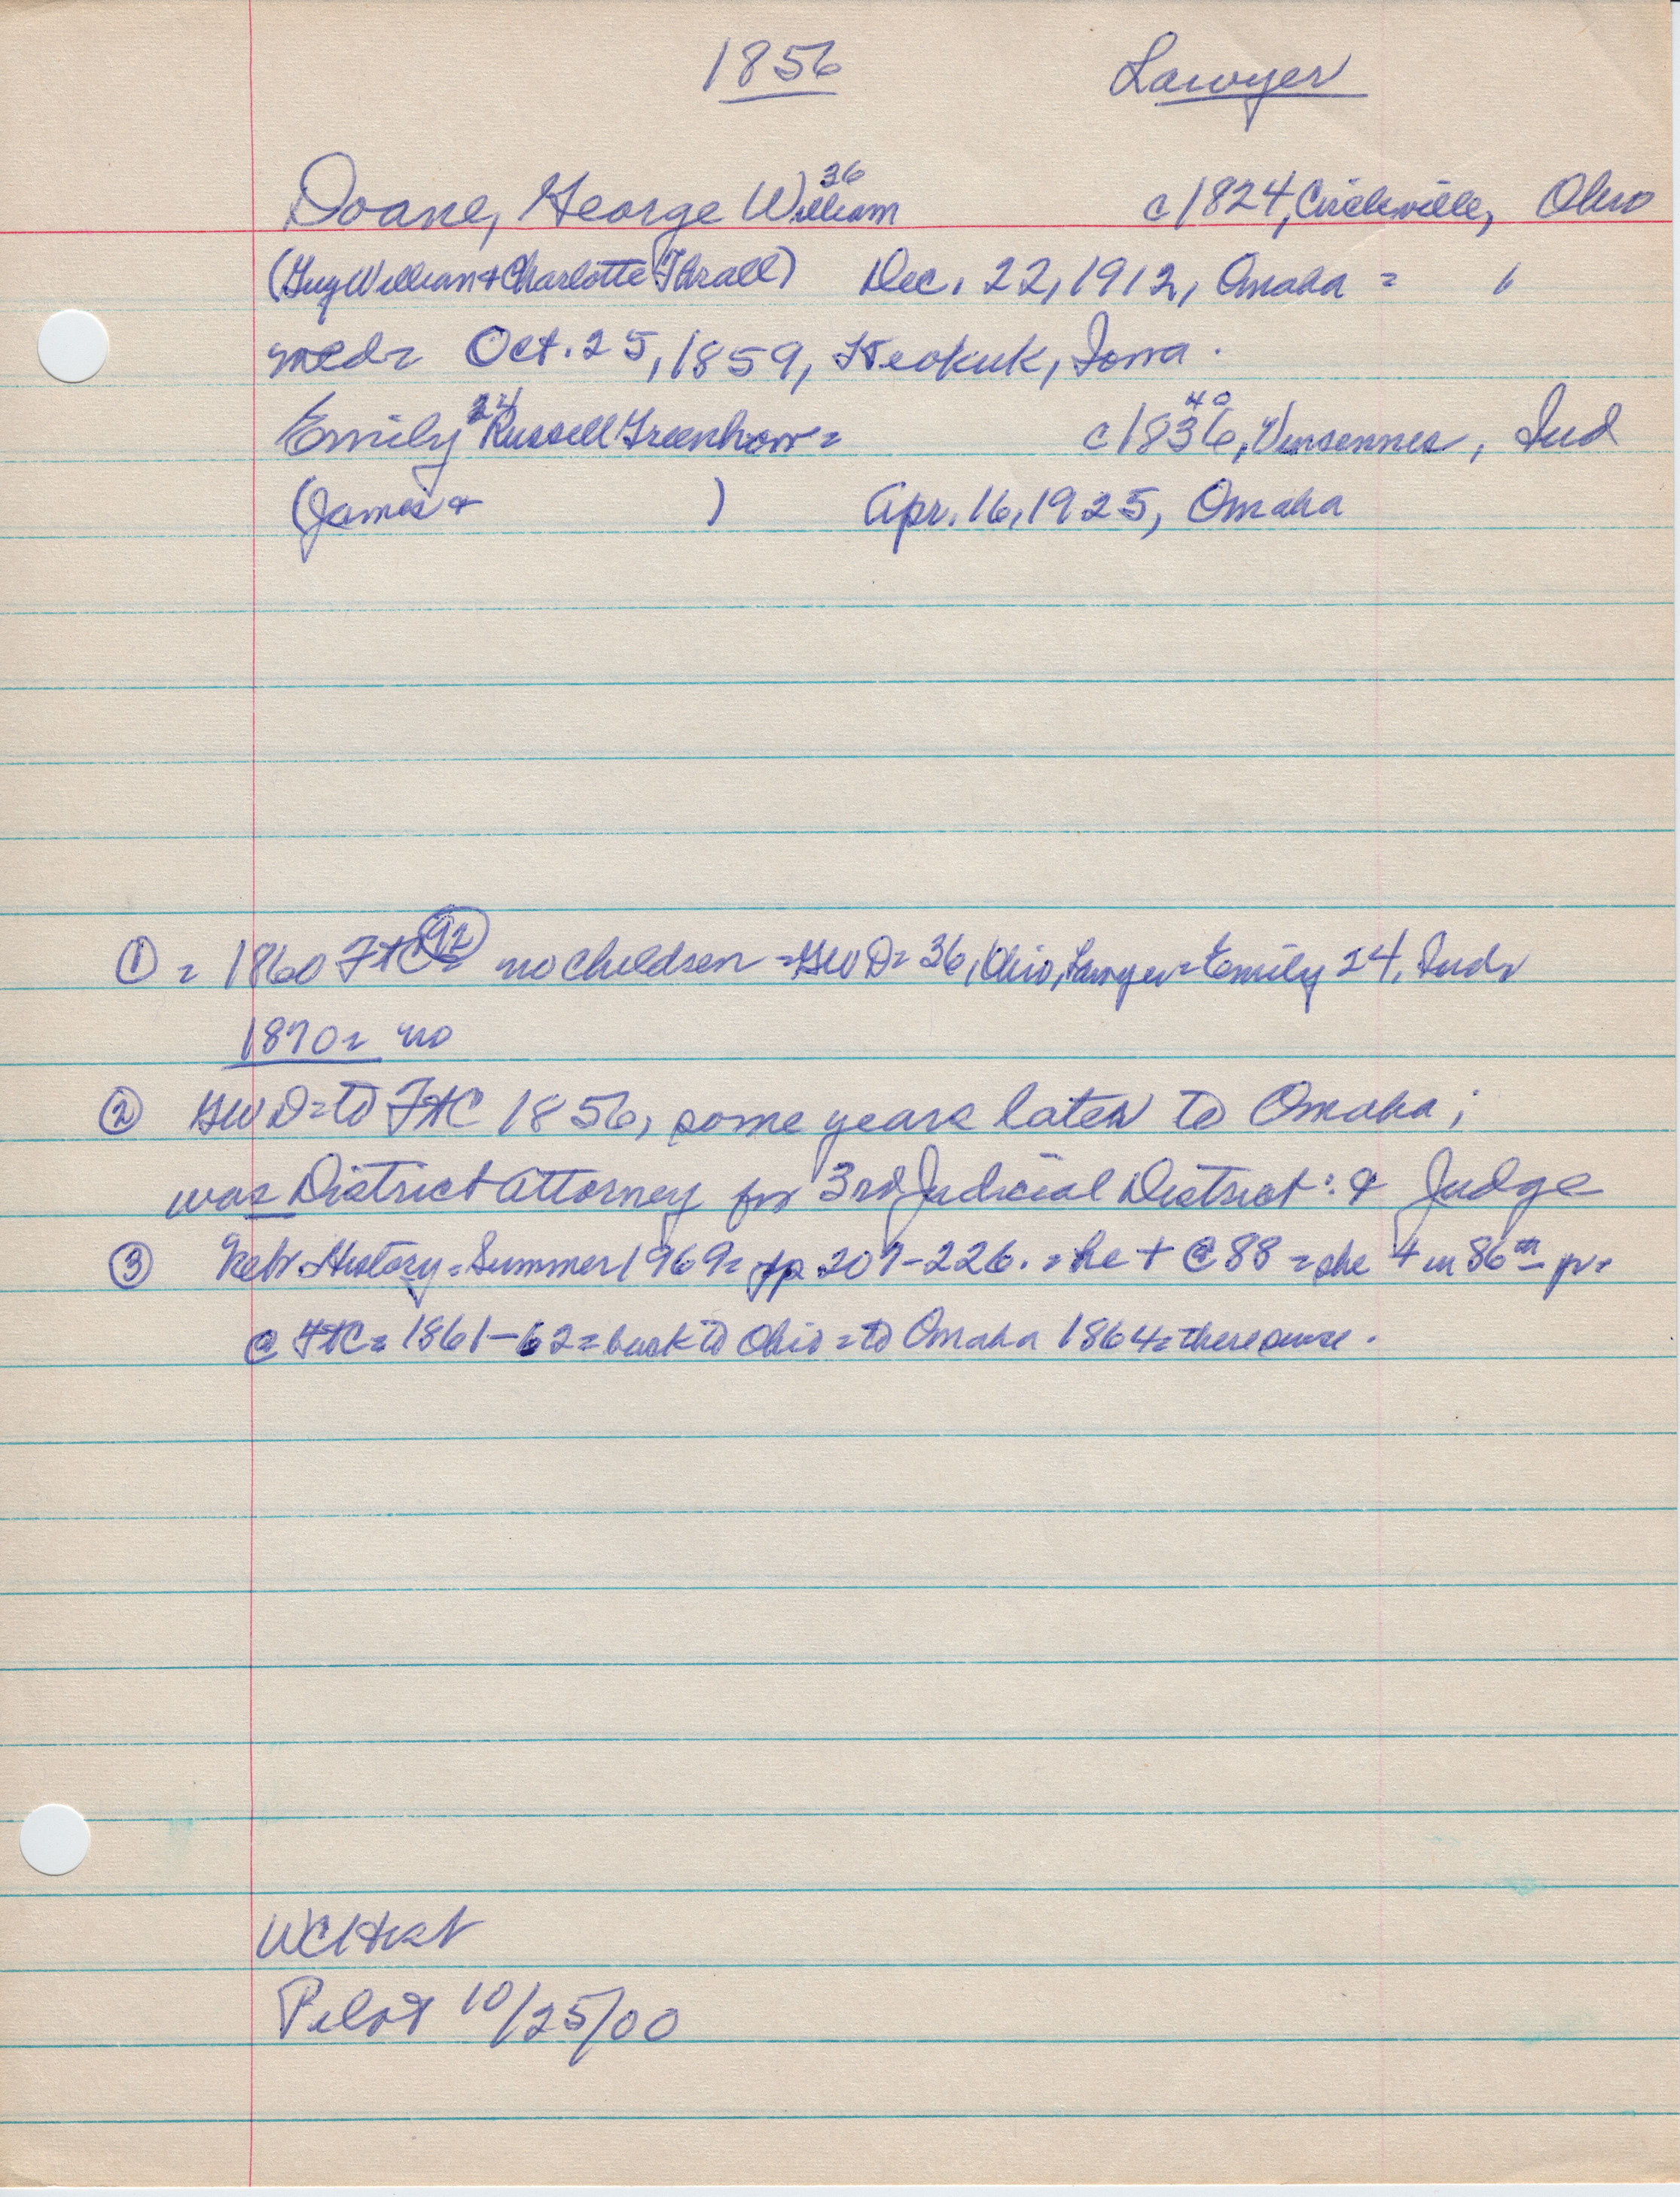 1856 Lawyer
Doane, George William 36 c1824, Circleville, Ohio
(Guy William + Charlotte Thrall) Dec. 22, 1912, Omaha =
med= Oct. 25, 1859, Keokuk, Iowa.
Emily 24 Russell Greenhow= c1836, 40 Vinsennes, Ind
(James + ) Apr. 16, 1925, Omaha
① = 1860 FtC= 92 no children = GWD= 36, Ohio, Lawyer = Emily 24, Ind=
1870= no
② GWD= to FtC 1856, some years later to Omaha;
was District Attorney for 3rd Judicial District: & Judge
③ Nebr. History = Summer 1969= pp 207-226. = he + @ 88 = she + in 86th
@ FtC= 1861-62= back to Ohio = to Omaha 1864= there
WCHist
Pilot 10/25/00